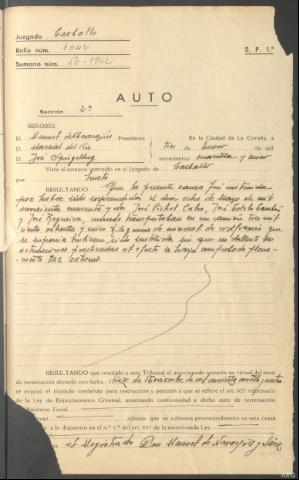 Juzgado Carballo
Rollo núm. 1042
Sumario núm. 50-1942
S. P. 1.ª
AUTO
Sección 2.ª
SEÑORES
D. Manuel Presidente
D. Mariscal del Río
D. José Spiegelberg
En la Ciudad de La Coruña, a
tres de Enero de mil
novecientos cuarenta y cinco
Visto el sumario instruido en el Juzgado de Carballo
por hurto
RESULTANDO: Que la presente causa fué instruida
por haber sido sorprendidos el día ocho de Mayo de mil
novecientos cuarenta y dos José Pichel Calvo, José
y José Nogueira, cuando transportaban en un camión tres mil
ciento ochenta y cinco kilogramos de mineral de wolframio que
se suponía hubieran sin que no obstante las
actuaciones practicadas al efecto se haya comprobado plena-
mente tal extremo.
RESULTANDO que remitido a este Tribunal el mencionado sumario en virtud del auto
de terminación dictado con fecha diez de Noviembre de mil novecientos cuarenta y cuatro
se evacuó el traslado conferido para instrucción y petición a que se refiere el art. 627 reformado
de la Ley de Enjuiciamiento Criminal, mostrando conformidad a dicho auto de terminación
Ministerio Fiscal
además que se sobresea provisionalmente en esta causa
a lo dispuesto en el n.º 1.º del art. 641 de la mencionada Ley
el Magistrado Don Manuel de